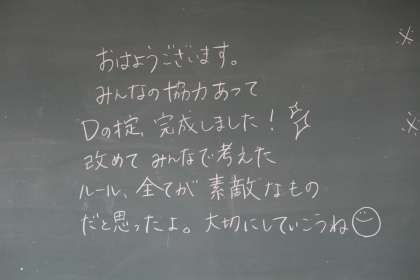 おはようございます。
みんなの協力あって
Dの掟、完成しました！
改めてみんなで考えた
ルール、全てが素敵なもの
だと思ったよ。大切にしていこうね